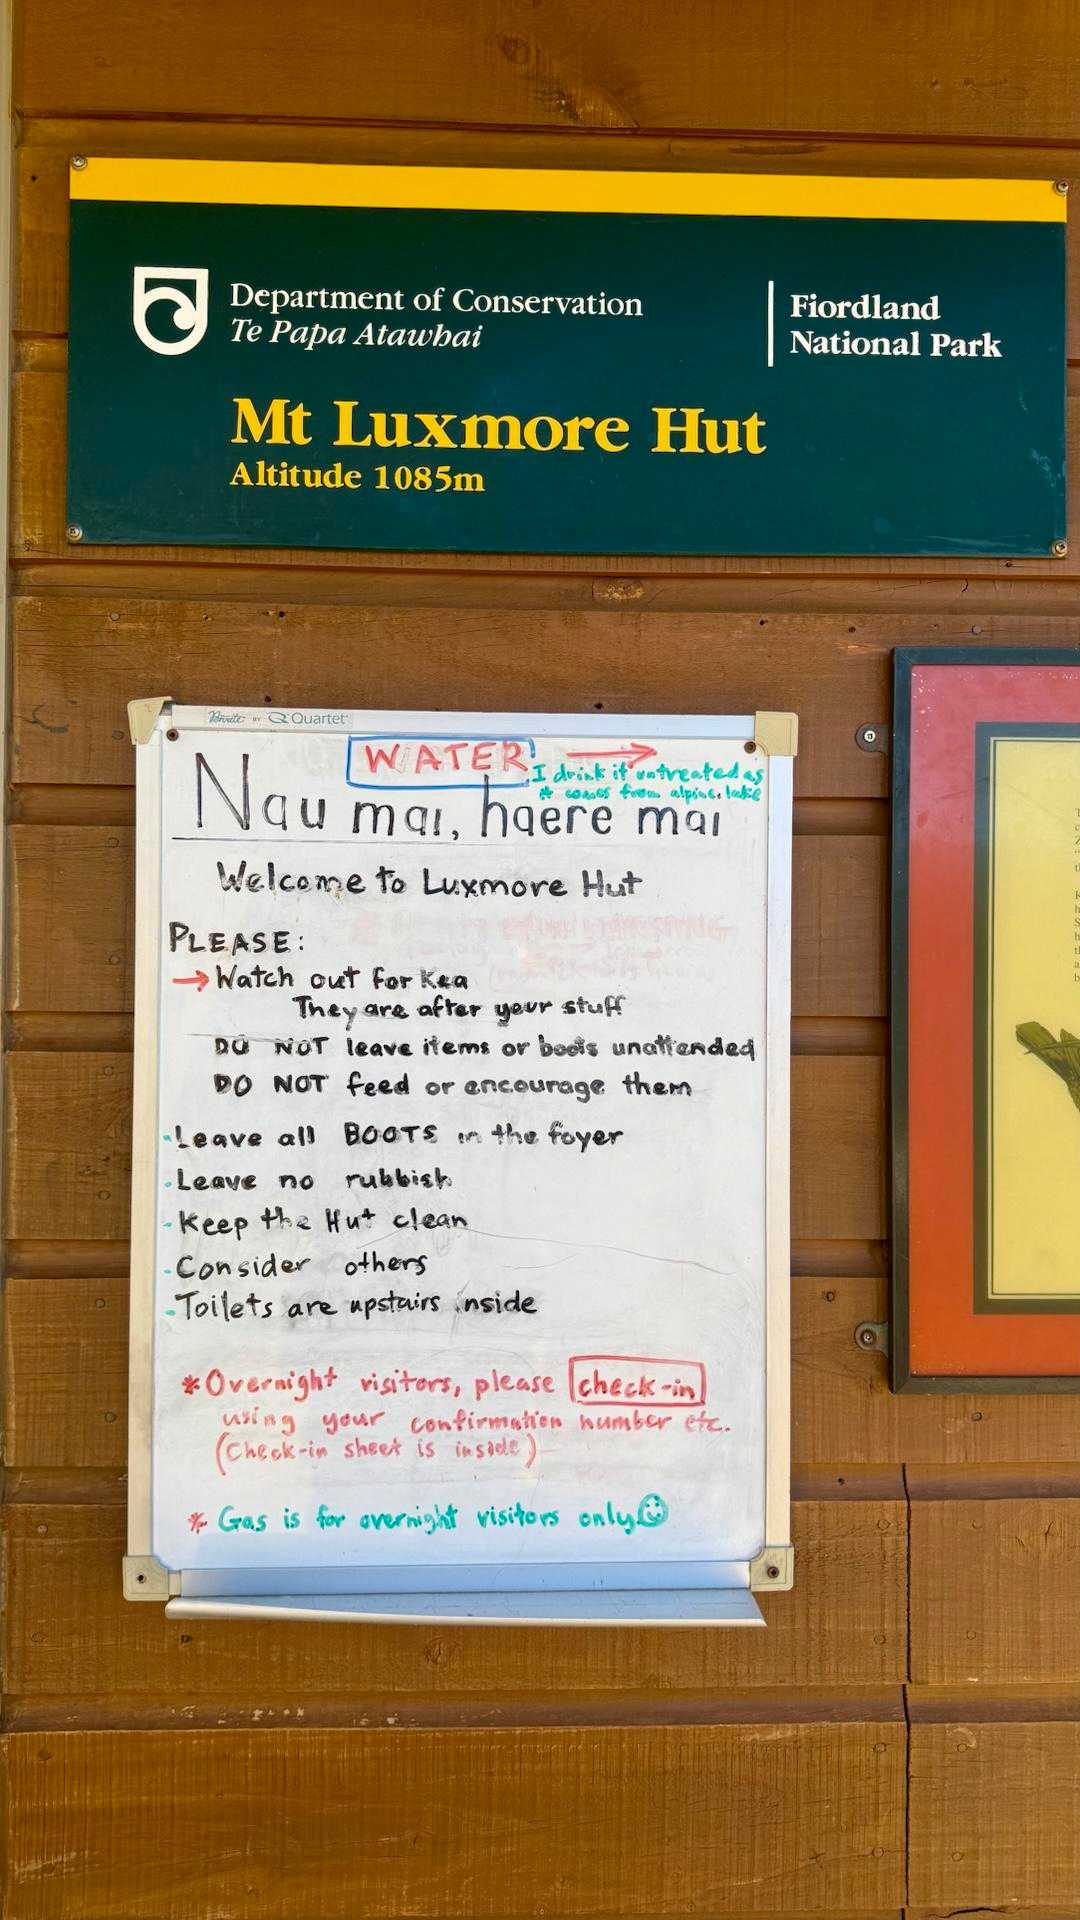 Department of Conservation
Te Papa Atawhai
Fiordland
National Park
Mt Luxmore Hut
Altitude 1085m
Boone BY Quartet
WATER!
I drink it untreated as
it comes from alpine lake
Nau mai, haere mai
Welcome to Luxmore Hut
PLEASE:
→ Watch out for Kea
They are after your stuff
DO NOT leave items or boots unattended
DO NOT feed or encourage them
-Leave all BOOTS in the foyer
-Leave no rubbish
-Keep the Hut clean
-Consider others
-Toilets are upstairs inside
*Overnight visitors, please check-in
using your confirmation number etc.
(Check-in sheet is inside)
* Gas is for overnight visitors only☺